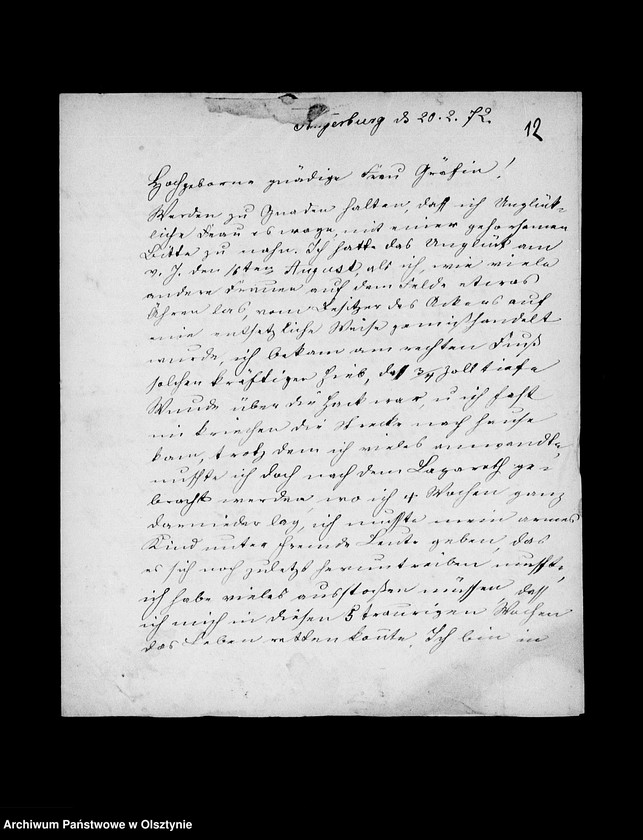 Angerburg d 20.2.72.
12
Hochgeborne gnädige Frau Gräfin!
Werden zu Gnaden halten, daß ich Unglück-
liche Frau es wage, mit einer gehorsamen
Bitte zu nahn. Ich hatte das Unglück am
v. J. den 16ten August, als ich, wie viele
andere Frauen auf dem Felde etwas
Ähren las, vom Besitzer des Ackers auf
eine entsetzliche Weise gemißhandelt
wurde, ich bekam am rechten Fuß
solchen kräftigen Hieb, daß 3/4 Zoll tiefe
Wunde über der Hack war, u ich fast
mit kriechen die Strecke nach Hause
kam, trotz dem ich vieles anwandte,
mußte ich doch nach dem Lazareth ge-
bracht werden, wo ich 4 Wochen ganz
darnieder lag, ich mußte mein armes
Kind unter fremde Leute geben, das
es sich noch zuletzt herumtreiben mußte,
ich habe vieles ausstoßen müssen, daß
ich mich in diesen 5 traurigen Wochen
das Leben retten konnte. Ich bin im
Archiwum Państwowe w Olsztynie